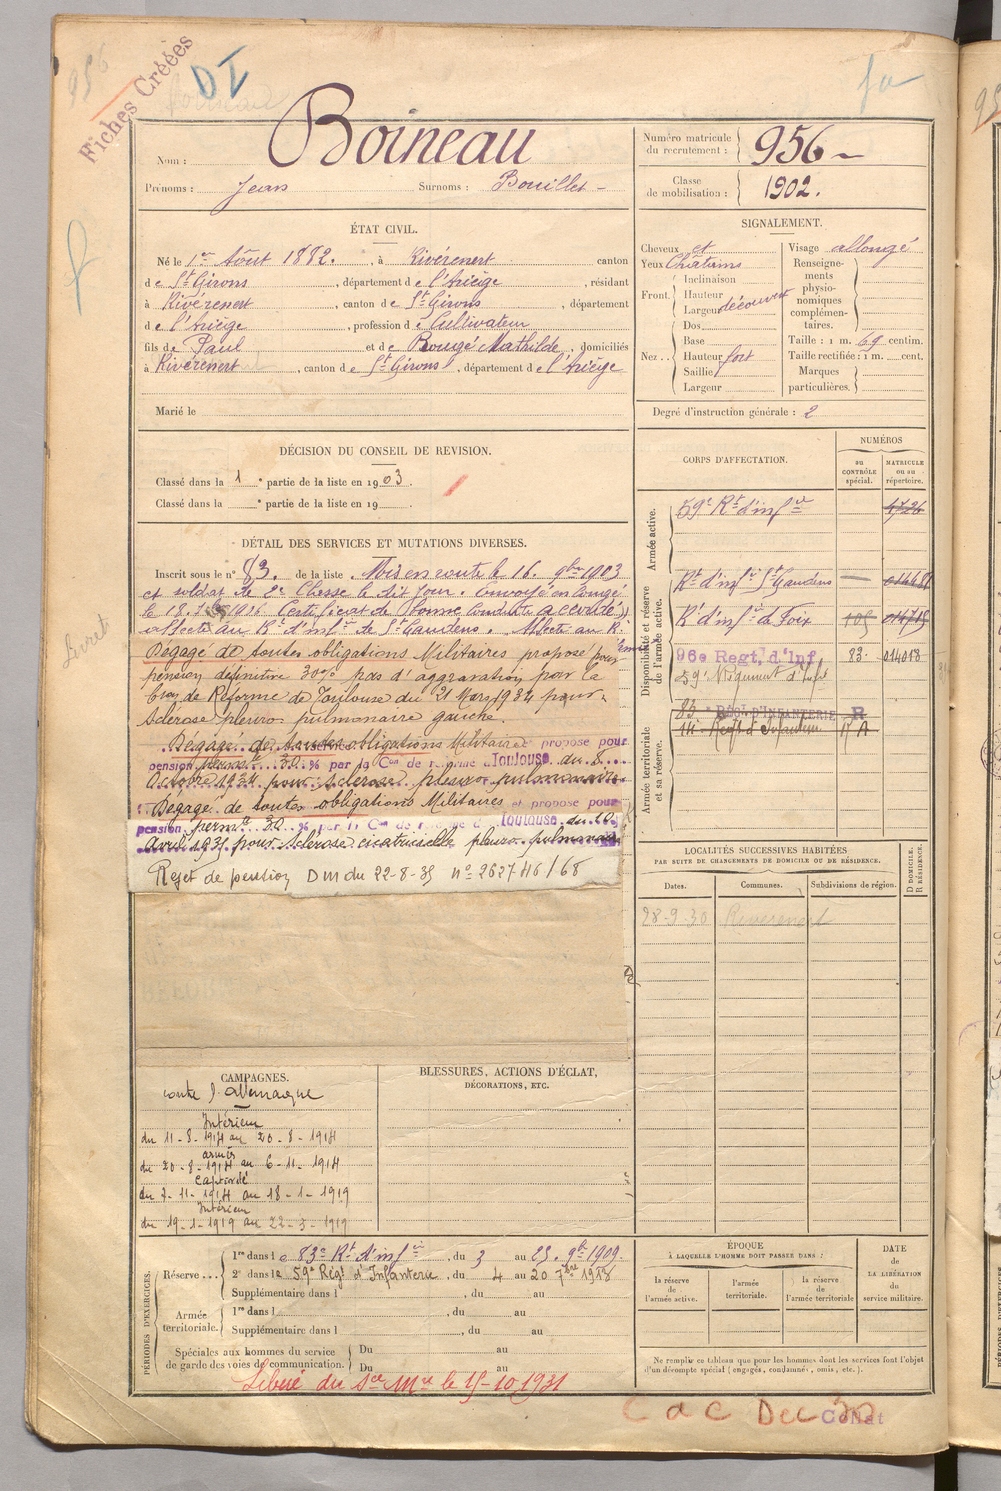 956
Fiches Créées
DI
fa
Nom : Boineau
Prénoms : Jean Surnoms : Bouillet -
Numéro matricule du recrutement : 956 -
Classe de mobilisation : 1902.
ÉTAT CIVIL.
Né le 1er Août 1882. , à Rivérenert canton
de St Girons , département de l'Ariège , résidant
à Rivérenert , canton de St Girons , département
de l'Ariège , profession de Cultivateur
fils de Paul et de Rougé Mathilde , domiciliés
à Rivérenert , canton de St Girons , département de l'Ariège
Marié le
SIGNALEMENT.
Cheveux et
Yeux Châtains
Front.
Inclinaison
Hauteur
Largeur découvert
Nez ..
Dos
Base
Hauteur fort
Saillie
Largeur
Visage allongé
Renseigne-
ments
physio-
nomiques
complémen-
taires.
Taille : 1 m. 69 centim.
Taille rectifiée : 1 m. cent.
Marques
particulières.
Degré d'instruction générale : 2
DÉCISION DU CONSEIL DE REVISION.
Classé dans la 1 e partie de la liste en 1903.
Classé dans la e partie de la liste en 19 .
DÉTAIL DES SERVICES ET MUTATIONS DIVERSES.
Inscrit sous le n° 83. de la liste . Mis en route le 16. 9bre 1903
et soldat de 2e Classe le dit jour. Envoyé en Congé
le 18. Certificat de Bonne Conduite accordé
affecté au Rt d'infie de St Gaudens. Affecté au Rt
Dégagé de toutes obligations Militaires proposé pour
pension définitive 30% pas d'aggravation par la
Cion de Réforme de Toulouse du 21 Mars 1934 pour
Sclérose pleuro pulmonaire gauche.
Dégagé de toutes obligations Militaires et propose pour
pension permte 30 % par la Con de réforme d Toulouse du 8
Octobre 1934 pour Sclérose pleuro pulmonaire
Dégagé de toutes obligations Militaires et propose pour
pension permte 30 % par la Con de réforme d Toulouse du 20
Avril 1935 pour Sclérose cicatricielle pleuro pulmonaire
Rejet de pension DM du 22-8-35 n° 262746/68
Livret
CORPS D'AFFECTATION.
NUMÉROS
au CONTRÔLE spécial.
MATRICULE ou au répertoire.
Armée active.
59e Rt d'infie 4726
Disponibilité et réserve de l'armée active.
Rt d'infie St Gaudens —
Rt d'infie de Foix 105 014715
96e Regt. d'Inf 83 014018
59e Régiment d'Infie
Armée territoriale et sa réserve.
83 e REGt D'INFANTERIE R
14 Regt d'Infanterie A
LOCALITÉS SUCCESSIVES HABITÉES
PAR SUITE DE CHANGEMENTS DE DOMICILE OU DE RÉSIDENCE.
Dates. Communes. Subdivisions de région. D DOMICILE. R RÉSIDENCE.
28-9-30 Riverenert
CAMPAGNES.
contre l'Allemagne
Intérieur
du 11-8-1914 au 20-8-1914
armées
du 20-8-1914 au 6-11-1914
Captivité
du 7-11-1914 au 18-1-1919
Intérieur
du 19-1-1919 au 22-3-1919
BLESSURES, ACTIONS D'ÉCLAT,
DÉCORATIONS, ETC.
PÉRIODES D'EXERCICES.
Réserve ...
1re dans le 83e Rt d'infie , du 3 au 25. 9bre 1909.
2e dans le 59e Régt d'Infanterie , du 4 au 20 7bre 1918
Supplémentaire dans l , du au
Armée territoriale.
1re dans l , du au
Supplémentaire dans l , du au
Spéciales aux hommes du service
de garde des voies de communication.
Du au
Du au
Libéré du Sce Mre le 15-10-1931
ÉPOQUE
À LAQUELLE L'HOMME DOIT PASSER DANS :
la réserve de l'armée active.
l'armée territoriale.
la réserve de l'armée territoriale
DATE
DE
LA LIBÉRATION
du
service militaire.
Ne remplir ce tableau que pour les hommes dont les services font l'objet
d'un décompte spécial (engagés, condamnés, omis, etc.).
C d C Dec 30